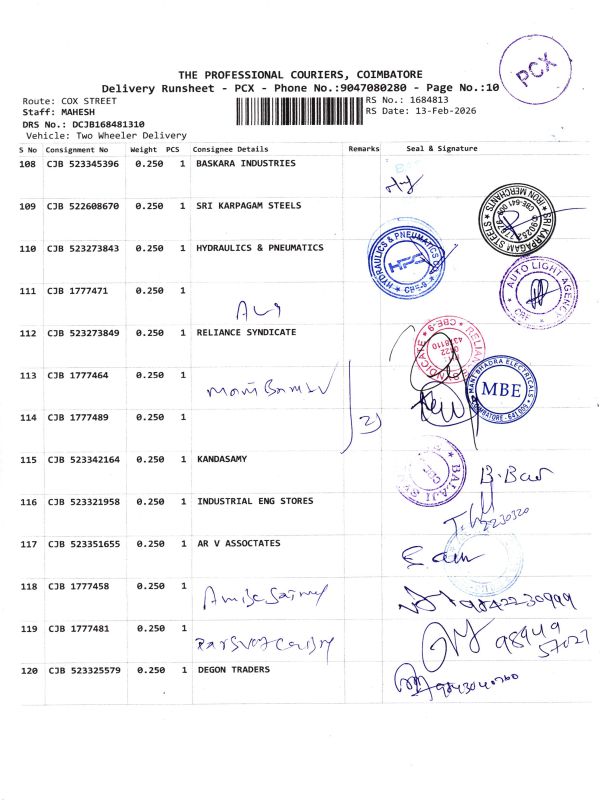 PCX
THE PROFESSIONAL COURIERS, COIMBATORE
Delivery Runsheet - PCX - Phone No.:9047080280 - Page No.:10
Route: COX STREET
RS No.: 1684813
Staff: MAHESH
RS Date: 13-Feb-2026
DRS No.: DCJB168481310
Vehicle: Two Wheeler Delivery
S No Consignment No Weight PCS Consignee Details Remarks Seal & Signature
108 CJB 523345396 0.250 1 BASKARA INDUSTRIES
109 CJB 522608670 0.250 1 SRI KARPAGAM STEELS
SRI KARPAGAM STEELS IRON MERCHANTS
110 CJB 523273843 0.250 1 HYDRAULICS & PNEUMATICS
HYDRAULICS & PNEUMATICS CO HPC CBE-9
111 CJB 1777471 0.250 1
AUTO LIGHT AGENC CBE
112 CJB 523273849 0.250 1 RELIANCE SYNDICATE
CBE-9
113 CJB 1777464 0.250 1
MANI BHADRA ELECTRICALS MBE COIMBATORE - 641 009
114 CJB 1777489 0.250 1
2)
115 CJB 523342164 0.250 1 KANDASAMY
BALAJI CBE
116 CJB 523321958 0.250 1 INDUSTRIAL ENG STORES
2230320
117 CJB 523351655 0.250 1 AR V ASSOCTATES
118 CJB 1777458 0.250 1
9842230999
119 CJB 1777481 0.250 1
98949
57027
120 CJB 523325579 0.250 1 DEGON TRADERS